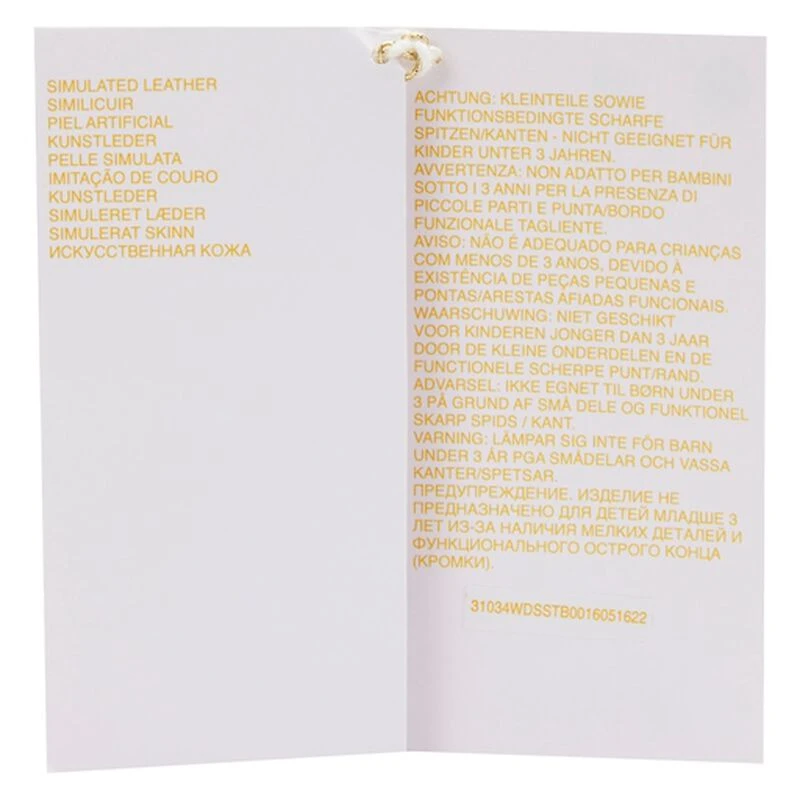 SIMULATED LEATHER
SIMILICUIR
PIEL ARTIFICIAL
KUNSTLEDER
PELLE SIMULATA
IMITAÇÃO DE COURO
KUNSTLEDER
SIMULERET LÆDER
SIMULERAT SKINN
ИСКУССТВЕННАЯ КОЖА
ACHTUNG: KLEINTEILE SOWIE
FUNKTIONSBEDINGTE SCHARFE
SPITZEN/KANTEN - NICHT GEEIGNET FÜR
KINDER UNTER 3 JAHREN.
AVVERTENZA: NON ADATTO PER BAMBINI
SOTTO I 3 ANNI PER LA PRESENZA DI
PICCOLE PARTI E PUNTA/BORDO
FUNZIONALE TAGLIENTE.
AVISO: NÃO É ADEQUADO PARA CRIANÇAS
COM MENOS DE 3 ANOS, DEVIDO À
EXISTÊNCIA DE PEÇAS PEQUENAS E
PONTAS/ARESTAS AFIADAS FUNCIONAIS.
WAARSCHUWING: NIET GESCHIKT
VOOR KINDEREN JONGER DAN 3 JAAR
DOOR DE KLEINE ONDERDELEN EN DE
FUNCTIONELE SCHERPE PUNT/RAND.
ADVARSEL: IKKE EGNET TIL BØRN UNDER
3 PÅ GRUND AF SMÅ DELE OG FUNKTIONEL
SKARP SPIDS / KANT.
VARNING: LÄMPAR SIG INTE FÖR BARN
UNDER 3 ÅR PGA SMÅDELAR OCH VASSA
KANTER/SPETSAR.
ПРЕДУПРЕЖДЕНИЕ. ИЗДЕЛИЕ НЕ
ПРЕДНАЗНАЧЕНО ДЛЯ ДЕТЕЙ МЛАДШЕ 3
ЛЕТ ИЗ-ЗА НАЛИЧИЯ МЕЛКИХ ДЕТАЛЕЙ И
ФУНКЦИОНАЛЬНОГО ОСТРОГО КОНЦА
(КРОМКИ).
31034WDSSTB0016051622